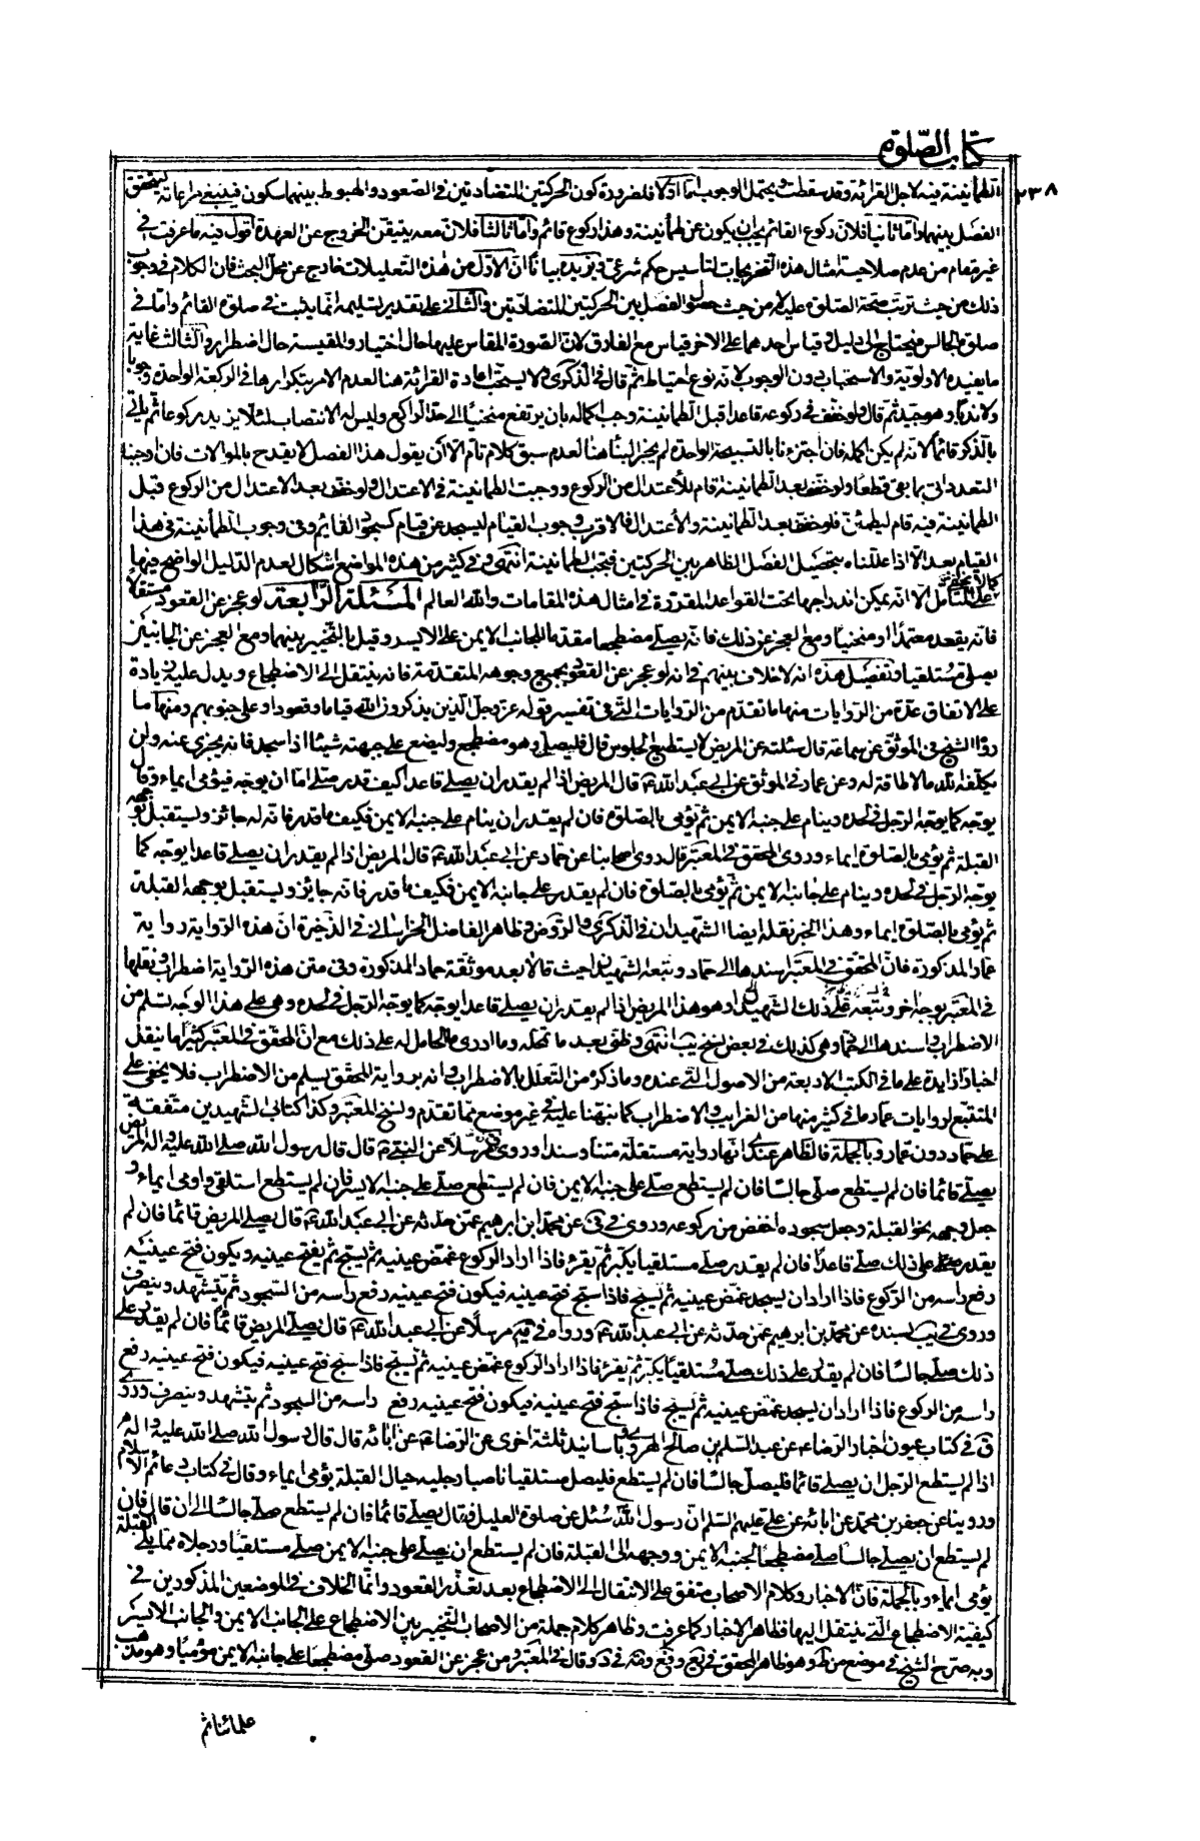 كتاب الصّلوة
٢٣٨
الطمأنينة فيه لاجل القرائة وقد سقطت ويحتمل الوجوب اما اوّلا فلضرورة كون الحركتين المتضادتين في الصّعود والهبوط بينهما سكون فينبغي مراعاته ليتحقق
الفصل بينهما واما ثانيا فلان ركوع القائم يجب ان يكون عن طمأنينة وهذا ركوع قائم واما ثالثا فلان معه يتيقن الخروج عن العهدة اقول فيه ما عرفت في
غير مقام من عدم صلاحية امثال هذه التخريجات لتأسيس حكم شرعي ويزيده بيانا انّ الاوّل من هذه التعليلات خارج عن محل البحث فان الكلام في وجوب
ذلك من حيث ترتب صحّة الصلوة عليه لا من حيث حصول الفصل بين الحركتين المتضادتين والثّاني على تقدير تسليمه انّما يثبت في صلوة القائم وامّا في
صلوة الجالس فيحتاج الى دليل وقياس احدهما على الاخر قياس مع الفارق لانّ الصّورة المقاس عليها حال اختيار والمقيسة حال اضطرار والثّالث غاية
ما يفيده الاولوية والاستحباب دون الوجوب لانه نوع احتياط ثم قال في الذّكرى ولا يستحب اعادة القرائة هنا لعدم الامر بتكرارها في الركعة الواحدة وجوبا
ولا ندبا وهو جيّد ثم قال ولو خفّ في ركوعه قاعدا قبل الطمانينة وجب اكماله بان يرتفع منحنيا الى حدّ الراكع وليس له الانتصاب لئلا يزيد ركوعا ثم يأتي
بالذكر قائما لانه لم يكن اكمله فان اجتزءنا بالتسبيحة الواحدة لم يجز البناء هنا لعدم سبق كلام تام الا ان يقول هذا الفصل لا يقدح بالموالات فان اوجبنا
التعدد اتى بما بقي قطعا ولو خفّ بعد الطمانينة قام للاعتدال من الركوع ووجبت الطمانينة في الاعتدال ولو خفّ بعد الاعتدال من الركوع قبل
الطمانينة فيه قام ليطمئن فلو خفّ بعد الطمانينة والاعتدال فالاقرب وجوب القيام ليسجد عن قيام كسجود القائم وفي وجوب الطمأنينة في هذا
القيام بعد الا اذا عللناه بتحصيل الفصل الظاهر بين الحركتين فتجب الطمانينة انتهى وفي كثير من هذه المواضع اشكال لعدم الدّليل الواضح فيها
كما لا يخفى على المتأمل الا انه يمكن اندراجها تحت القواعد المقررة في امثال هذه المقامات والله العالم المسئلة الرّابعة لو عجز عن القعود مستقلا
فانه يقعد معتمدا او منحنيا ومع العجز عن ذلك فانه يصلي مضطجعا مقدما للجانب الايمن على الايسر وقيل بالتخيير بينهما ومع العجز عن الجانبين
يصلّي مستلقيا وتفصيل هذه انه لا خلاف بينهم في انه لو عجز عن القعود بجميع وجوهه المتقدمة فانه ينتقل الى الاضطجاع ويدل عليه زيادة
على الاتفاق عدّة من الروايات منها ما تقدم من الرّوايات الّتي في تفسير قوله عز وجل الّذين يذكرون الله قياما وقعودا وعلى جنوبهم ومنها ما
رواه الشيخ في الموثّق عن سماعة قال سئلته عن المريض لا يستطيع الجلوس قال فليصلّ وهو مضطجع وليضع على جبهته شيئا اذا سجد فانه يجزي عنه ولن
يكلّفه الله ما لا طاقة له وعن عمار في الموثق عن ابي عبد الله ع قال المريض اذا لم يقدر ان يصلّي قاعدا كيف قدر صلّى امّا ان يوجّه فيؤمي ايماء وقال
يوجّه كما يوجّه الرّجل في لحده وينام على جنبه الايمن ثم يؤمي بالصّلوة فان لم يقدر ان ينام على جنبه الايمن فكيف ما قدر فانه له جائز وليستقبل بوجهه
القبلة ثم يؤمي بالصّلوة ايماء وروى المحقق في المعتبر قال روى اصحابنا عن حماد عن ابي عبد الله ع قال المريض اذا لم يقدر ان يصلّي قاعدا يوجّه كما
يوجّه الرّجل في لحده وينام على جانبه الايمن ثم يؤمي بالصّلوة فان لم يقدر على جانبه الايمن فكيف ما قدر فانه جائز ويستقبل بوجهه القبلة
ثم يؤمي بالصّلوة ايماء وهذا الخبر نقله ايضا الشّهيدان في الذّكرى والرّوض وظاهر الفاضل الخراساني في الذّخيرة انّ هذه الرّواية رواية
عمّار المذكورة فانّ المحقق في المعتبر اسندها الى حمّاد وتبعه الشهيدان حيث قالا بعد موثقة حماد المذكورة وفي متن هذه الرّواية اضطراب ونقلها
في المعتبر بوجه اخر وتبعه على ذلك الشّهيدان وهو هذا المريض اذا لم يقدر ان يصلّي قاعدا يوجّه كما يوجّه الرّجل في لحده وهي على هذا الوجه تسلم من
الاضطراب واسندها الى حمّاد وهي كذلك في بعض نسخ يب انتهى وظنّي بعد ما تكلفه وما ادري ما الحامل له على ذلك مع انّ المحقق في المعتبر كثيرا ما ينقل
اخبارا زايدة على ما في الكتب الاربعة من الاصول الّتي عنده وما ذكره من التعلّل بالاضطراب وانه برواية المحقّق يسلم من الاضطراب فلا يخفى على
المتتبع لروايات عمار ما في كثير منها من الغرايب والاضطراب كما نبّهنا عليه في غير موضع مما تقدم ونسخ المعتبر وكذا كتابي الشهيدين متفقة
على حمّاد دون عمّار وبالجملة فالظاهر عندي انّها رواية مستقلة متنا وسندا وروى في مرسلا عن النبي ص قال قال رسول الله صلى الله عليه واله المريض
يصلّي قائما فان لم يستطع صلّى جالسا فان لم يستطع صلّى على جنبه الايمن فان لم يستطع صلّى على جنبه الايسر فان لم يستطع استلقى واومى ايماء و
جعل وجهه نحو القبلة وجعل سجوده اخفض من ركوعه وروى في عن محمد ابن ابرهيم عمن حدثه عن ابي عبد الله ع قال يصلّي المريض قائما فان لم
يقدر على ذلك صلّى قاعدا فان لم يقدر صلّى مستلقيا يكبّر ثم يقرء فاذا اراد الركوع غمّض عينيه ثم يسبّح ثم يفتح عينيه ويكون فتح عينيه
رفع راسه من الرّكوع فاذا اراد ان يسجد غمّض عينيه ثم يسبّح فاذا سبّح فتح عينيه فيكون فتح عينيه رفع راسه من السّجود ثم يتشهد وينصرف
وروى في يب بسنده عن محمد بن ابرهيم عمن حدثه عن ابي عبد الله ع ورواه في مرسلا عن ابي عبد الله ع قال يصلّي المريض قائما فان لم يقدر على
ذلك صلّى جالسا فان لم يقدر على ذلك صلّى مستلقيا يكبّر ثم يقرء فاذا اراد الركوع غمّض عينيه ثم يسبّح فاذا سبّح فتح عينيه فيكون فتح عينيه رفع
راسه من الركوع فاذا اراد ان يسجد غمّض عينيه ثم يسبّح فاذا سبّح فتح عينيه فيكون فتح عينيه رفع راسه من السجود ثم يتشهد وينصرف وروى
ق في كتاب عيون اخبار الرّضا ع عن عبد السّلم بن صالح الهروي وباسانيد ثلثة اخرى عن الرّضا ع عن ابائه قال قال رسول الله صلى الله عليه واله
اذا لم يستطع الرّجل ان يصلّي قائما فليصلّ جالسا فان لم يستطع فليصل مستلقيا ناصبا رجليه حيال القبلة يؤمي ايماء وقال في كتاب دعائم الاسلام
وروينا عن جعفر بن محمد عن ابائه عن علي عليهم السّلم انّ رسول الله سُئل عن صلوة العليل فقال يصلّي قائما فان لم يستطع صلّى جالسا الى ان قال فان
لم يستطع ان يصلّي جالسا صلّى مضطجعا لجنبه الايمن ووجهه الى القبلة فان لم يستطع ان يصلّي على جنبه الايمن صلّى مستلقيا ورجلاه مما يلي القبلة
يؤمي ايماء وبالجملة فانّ الاخبار وكلام الاصحاب متفق على الانتقال الى الاضطجاع بعد تعذّر القعود وانّما الخلاف في الموضعين المذكورين في
كيفية الاضطجاع الّتي ينتقل اليها فظاهر الاخبار كما عرفت وظاهر كلام جملة من الاصحاب التخيير بين الاضطجاع على الجانب الايمن والجانب الايسر
وبه صرّح الشيخ في موضع من ط وهو ظاهر المحقق في يع وفع وقال في المعتبر ومن عجز عن القعود صلّى مضطجعا على جانبه الايمن مؤميا وهو مذهب
علمائنا ثم